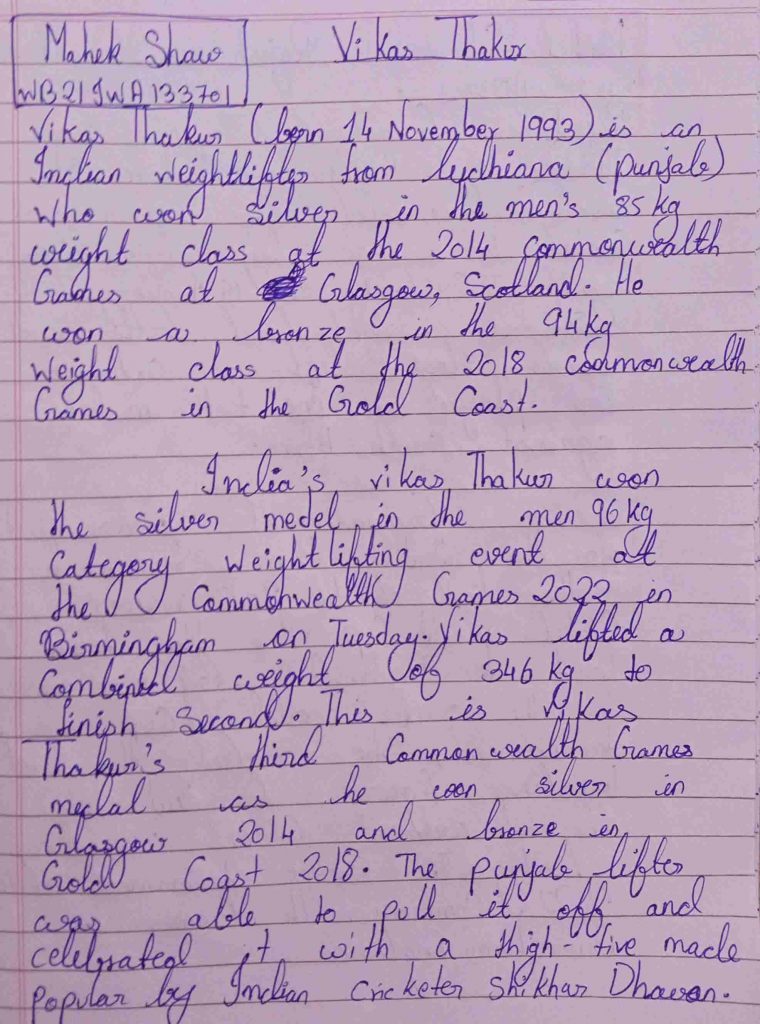 Mahek Shaw
Vikas Thakur
WB21JWA133701
Vikas Thakur (born 14 November 1993) is an
Indian weightlifter from ludhiana (punjab)
who won silver in the men's 85 kg
weight class at the 2014 commonwealth
Games at Glasgow, Scotland. He
won a bronze in the 94 kg
weight class at the 2018 commonwealth
Games in the Gold Coast.
India's vikas Thakur won
the silver medel in the men 96 kg
Category Weightlifting event at
the Commonwealth Games 2022 in
Birmingham on Tuesday. Vikas lifted a
Combined weight of 346 kg to
finish Second. This is Vikas
Thakur's third Commonwealth Games
medal as he won silver in
Glasgow 2014 and bronze in
Gold Coast 2018. The punjab lifter
was able to pull it off and
celebrated it with a thigh-five made
popular by Indian cricketer Shikhar Dhawan.